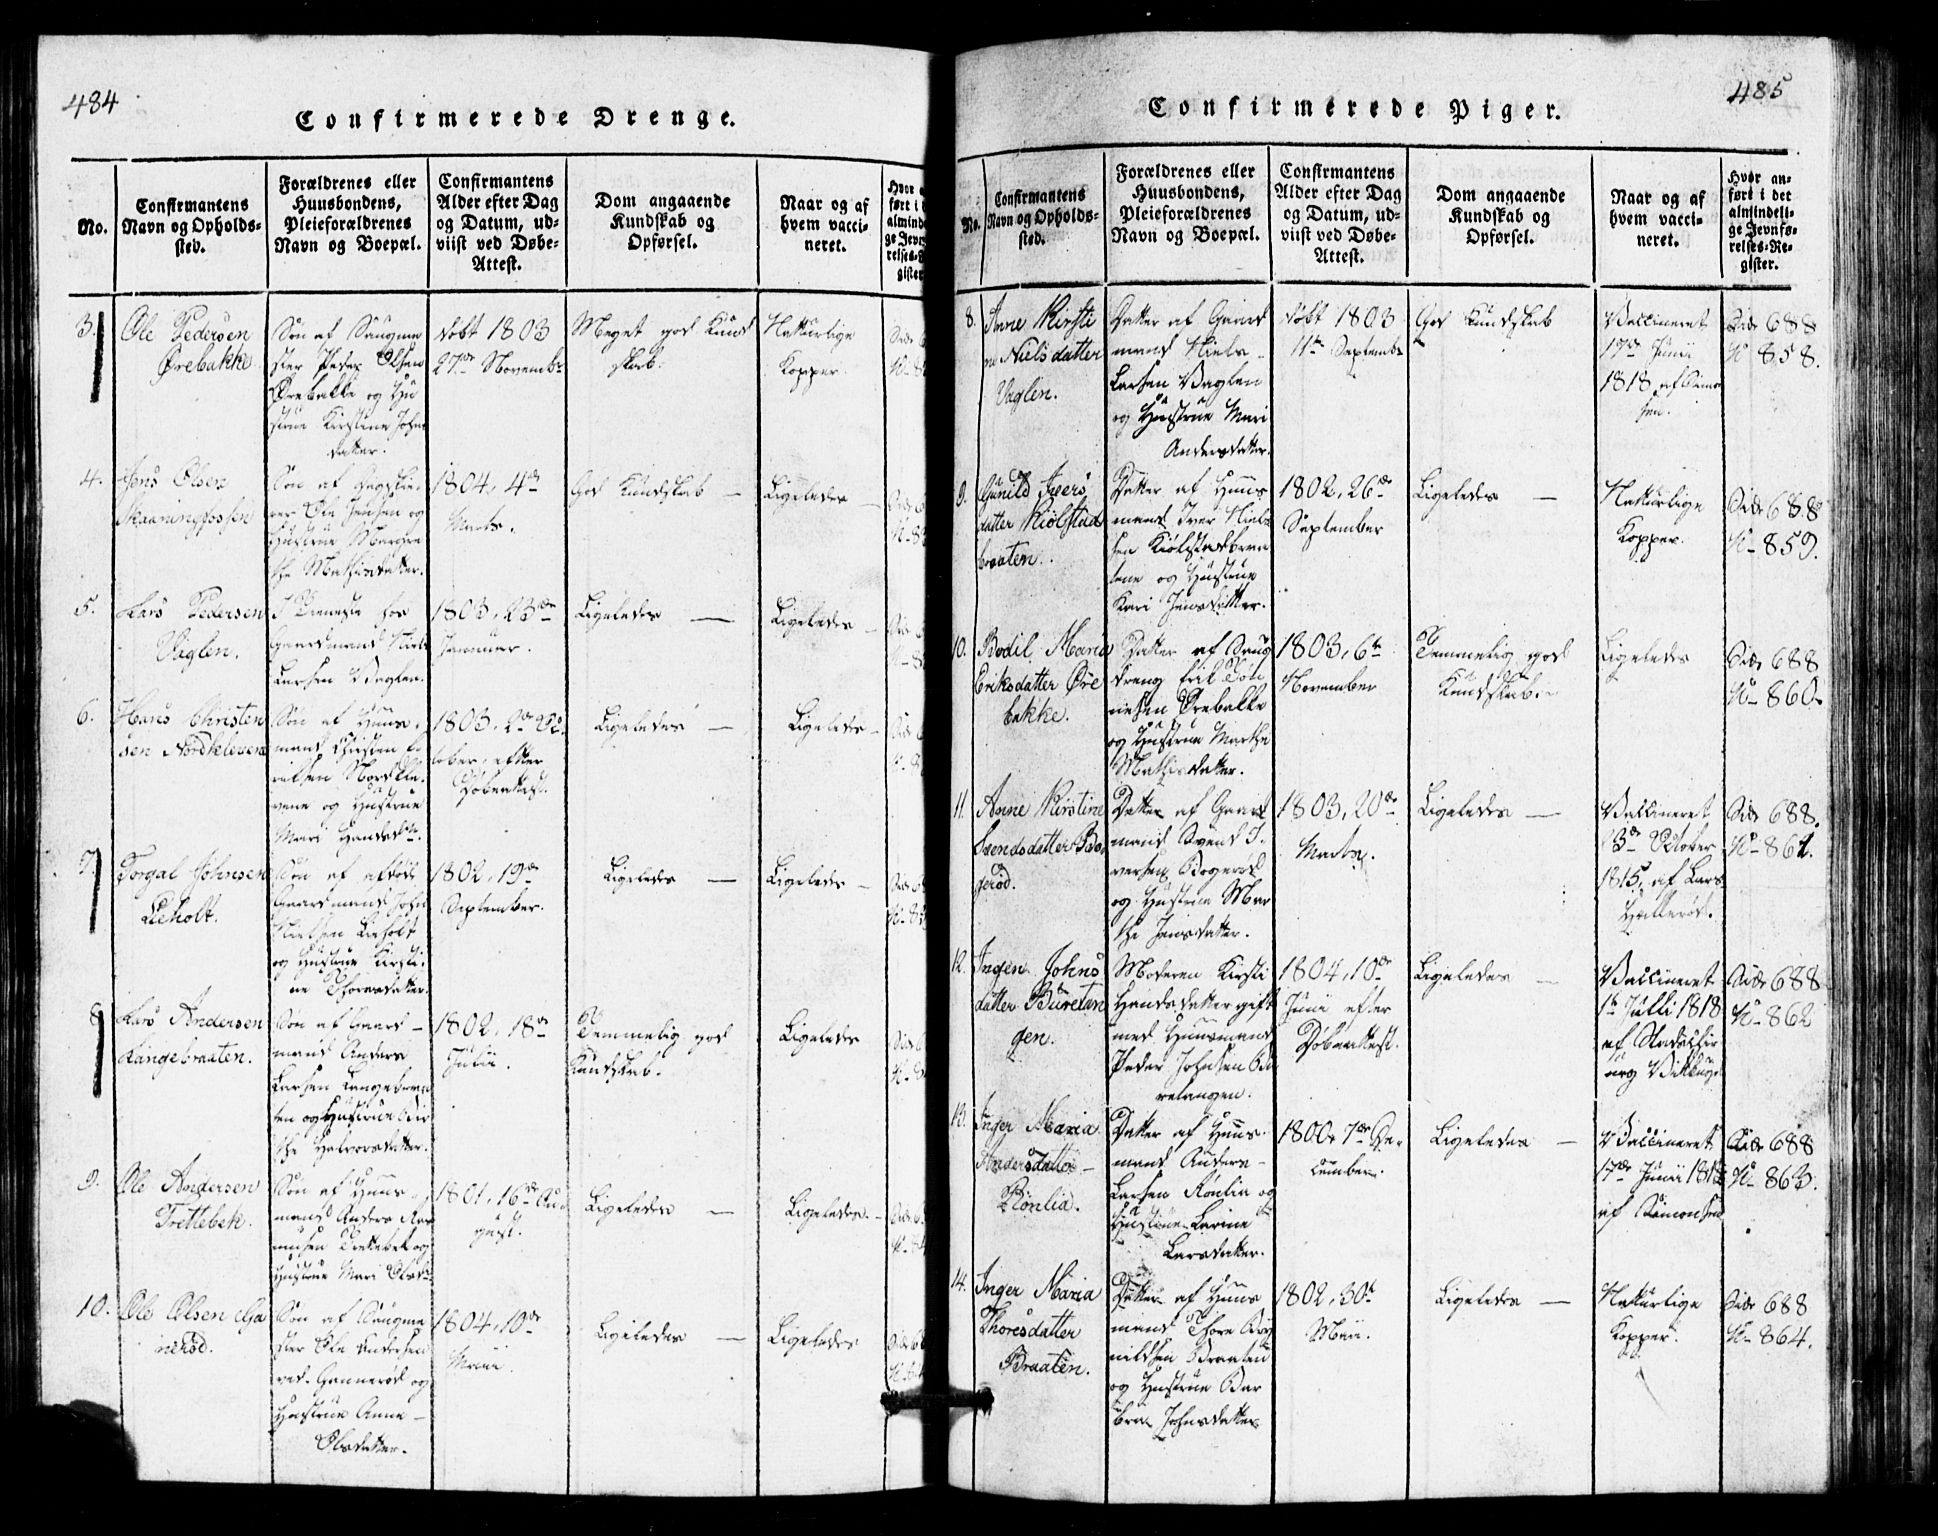 484
Confirmerede Drenge.
No.
Confirmantens
Navn og Opholds-
sted.
Forældrenes eller
Huusbondens,
Pleieforældrenes
Navn og Boepæl.
Confirmantens
Alder efter Dag
og Datum, ud-
viist ved Døbe-
Attest.
Dom angaaende
Kundskab og
Opførsel.
Naar og af
hvem vacci-
neret.
3.
Ole Pedersen
Ørebakke
Søn af Saugme
ster Peder Olsen
Ørebakke og Hu
strue Kirstine Johns
datter.
døbt 1803
27de Novembr
Meget god Kund
skab.
Naturlige
Kopper.
4.
Jens Olsen
Skaaningfossen
Søn af
Ole Jensen og
Hustrue Margre
the Mathisdatter.
1804, 4de
Marts.
God Kundskab —
Ligeledes —
5.
Lars Pedersen
Vaglen.
I Tieneste hos
Gaardmand Niels
Larsen Vaglen.
1803, 23de
Januar.
Ligeledes —
Ligeledes —
6.
Hans Christen
sen Nordkleven
Søn af Huus-
mand Christen E
riksen Nordkle-
vene og Hustrue
Mari Hansdtr.
1803, 2de Oc-
tober, efter
Døbeattest.
Ligeledes —
Ligeledes —
7.
Torgal Johnsen
Lieholt.
Søn af afdøde
Gaardmand John
Nielsen Lieholt
og Hustrue Kirsti-
ne Thoresdatter.
1802, 19de
September.
Ligeledes —
Ligeledes —
8.
Lars Andersen
Langebraaten.
Søn af Gaard-
mand Anders
Larsen Langebraa
ten og Hustrue Bir
the Halvorsdatter.
1802, 18de
Julii.
Temmelig god
Kundskab.
Ligeledes
9.
Ole Andersen
Trettebek.
Søn af Huus-
mand Anders Ras
musen Trettebek og
Hustrue Mari Olsdtr
1801, 16de Au-
gust.
Ligeledes —
Ligeledes. —
10.
Ole Olsen Ga
nerød.
Søn af Saugme
ster Ole Andersen
ved Gannerød og
Hustrue Anne —
Olsdatter.
1804, 10de
Maii.
Ligeledes —
Ligeledes
485
Confirmerede Piger.
No.
Confirmantens
Navn og Opholds-
sted.
Forældrenes eller
Huusbondens,
Pleieforældrenes
Navn og Boepæl.
Confirmantens
Alder efter Dag
og Datum, ud-
viist ved Døbe-
Attest.
Dom angaaende
Kundskab og
Opførsel.
Naar og af
hvem vacci-
neret.
Hvor an-
ført i det
almindeli-
ge Jevnfø-
relses-Re-
gister.
8.
Anne Kirsti
ne Nielsdatter
Vaglen.
Datter af Gaard
mand Niels
Larsen Vaglen
og Hustrue Mari
Andersdatter.
døbt 1803
11te Septembr
God Kundskab
Vaccineret
17de Junii
1818, af Simon
sen.
Side 688
No 858.
9.
Gunild Ivers
datter Kiølstad
braaten.
Datter af Huus
mand Iver Niel
sen Kiølstadbraa
tene og Hustrue
Kari Jensdatter.
1802, 26de
September
Ligeledes —
Naturlige
Kopper.
Side 688
No 859.
10.
Bodil Maria
Eriksdatter Øre
bakke.
Datter af Saug
dreng Erik Tøn
nesen Ørebakke
og Hustrue Marthe
Mathisdatter.
1803, 6te
November
Temmelig god
Kundskab.
Ligeledes
Side 688
No 860.
11.
Anne Kirstine
Svendsdatter Bo
gerød.
Datter af Gaard
mand Svend I-
versen Bogerød
og Hustrue Mar
the Jensdatter.
1803, 20de
Marts.
Ligeledes —
Vaccineret
3de October
1815, af Lars
Hallerød.
Side 688.
No 861.
12.
Ingen Johns
datter Buretan
gen.
Moderen Kirsti
Hansdatter gift
med Huusmand
Peder Johnsen Bu
retangen.
1804, 10de
Junii efter
Døbeattest.
Ligeledes —
Vaccineret
1te Julli 1818
af Stadschir
urg
Side 688
No 862
13.
Inger Maria
Andersdatter —
Rønlia.
Datter af Huus-
mand Anders —
Larsen Rønlia og
Hustrue Karine
Larsdatter.
1800, 7de De-
cember.
Ligeledes —
Vaccineret
17de Junii 1818
af Simonsen
Side 688
No 863.
14.
Inger Maria
Thoresdatter
Braaten.
Datter af Huus
mand Thore Bry
nildsen Braaten
og Hustrue Bar
bra Johnsdatter
1802, 30te
Maii.
Ligeledes —
Naturlige
Kopper.
Side 688
No 864.